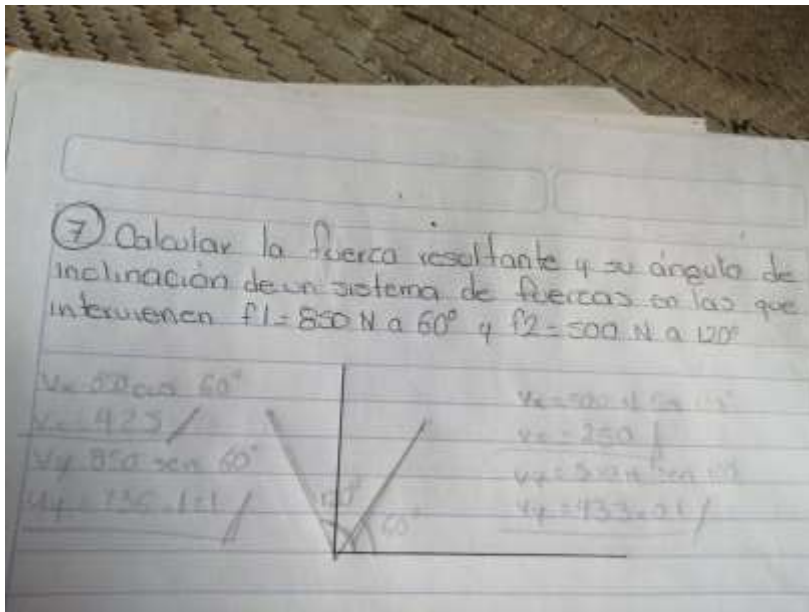 7 Calcular la fuerza resultante y su ángulo de
inclinación de un sistema de fuerzas en las que
intervienen f1=850 N a 60° y f2=500 N a 120°
Vx=850 cos 60°
Vx=425
Vy=850 sen 60°
Vy=736.121
120°
60°
Vx=500
Vx=-250
Vy=500 sen
Vy=433.01